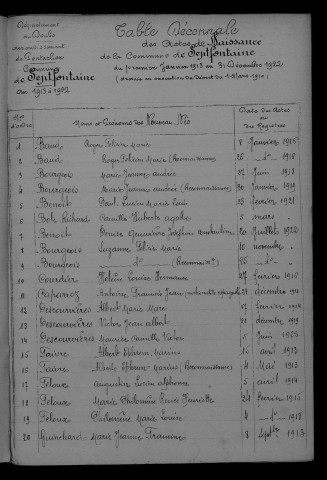 Département
du Doubs
Arrondissement
de Pontarlier
Commune
de Septfontaine
de 1913 à 1922
Table Décennale
des Actes de Naissance
de la Commune de Septfontaine
du premier janvier 1913 au 31 Décembre 1922
Nos d'ordre
Noms et Prénoms des Nouveau Nés
Date des Actes
1 Baud Roger Pélam Marie 8 Janvier 1915
2 Baud Marie (Reconnaissance) 26 - do - 1916
3 Bourgeois Marie Jeannes Andrée 27 Juin 1913
4 Bourgeois Marie Jeannes Andrée (Reconnaissance) 30 Janvier 1919
5 Benoit Paul Lucien Marie Louis 13 février 1921
6 Bole Richard Camille Huberte Agathe 5 mars "
7 Benoit Denise Geneviève Joséphine 20 Juillet 1922
8 Bourgeois Suzanne Marie 10 novembre "
9 Bourgeois - do - (Reconnaissance) 25 - do - "
10 Courdier Hélène Louise Germaine 27 février 1915
11 Antoine Francis Jean 21 décembre 1914
12 Descourvières Albert Marie Marc 17 février 1914
13 Descourvières Victor Jean Albert 31 décembre 1919
14 Descourvières Maurice Camille Victor 5 Juin 1922
15 Faivre Albert Marius 16 avril 1913
16 Faivre Albert Marius (Reconnaissance) 4 Mai 1913
17 Peloux Augustin Louis Alphonse 5 avril 1914
18 Peloux Marie Philomène Henriette 24 février 1915
19 Peloux Philomène Marie Louise 4 - do - 1918
20 Guinchard Marie Jeanne 8 Septbre 1913